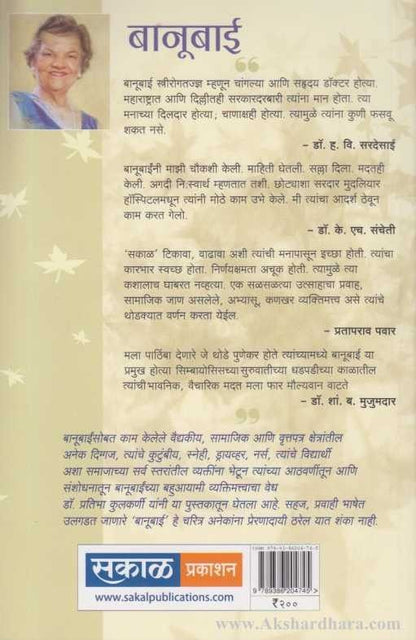 बानूबाई
बानूबाई स्त्रीरोगतज्ज्ञ म्हणून चांगल्या आणि सहृदय डॉक्टर होत्या.
महाराष्ट्रात आणि दिल्लीतही सरकारदरबारी त्यांना मान होता. त्या
मनाच्या दिलदार होत्या; चाणाक्षही होत्या. त्यामुळे त्यांना कुणी फसवू
शकत नसे.
– डॉ. ह. वि. सरदेसाई
बानूबाईंनी माझी चौकशी केली. माहिती घेतली. सल्ला दिला. मदतही
केली. अगदी नि:स्वार्थ म्हणतात तशी. छोट्याशा सरदार मुदलियार
हॉस्पिटलमधून त्यांनी मोठे काम उभे केले. मी त्यांचा आदर्श ठेवून
काम करत गेलो.
– डॉ. के. एच. संचेती
‘सकाळ’ टिकावा, वाढावा अशी त्यांची मनापासून इच्छा होती. त्यांचा
कारभार स्वच्छ होता. निर्णयक्षमता अचूक होती. त्यामुळे त्या
कशालाच घाबरत नव्हत्या. एक सळसळत्या उत्साहाचा प्रवाह,
सामाजिक जाण असलेले, अभ्यासू, कणखर व्यक्तिमत्त्व असे त्यांचे
थोडक्यात वर्णन करता येईल.
– प्रतापराव पवार
मला पाठिंबा देणारे जे थोडे पुणेकर होते त्यांच्यामध्ये बानूबाई या
प्रमुख होत्या सिम्बायोसिसच्या सुरुवातीच्या धडपडीच्या काळातील
त्यांची भावनिक, वैचारिक मदत मला फार मौल्यवान वाटते
– डॉ. शां. ब. मुजुमदार
बानूबाईंसोबत काम केलेले वैद्यकीय, सामाजिक आणि वृत्तपत्र क्षेत्रांतील
अनेक दिग्गज, त्यांचे कुटुंबीय, स्नेही, ड्रायव्हर, नर्स, त्यांचे विद्यार्थी
अशा समाजाच्या सर्व स्तरांतील व्यक्तींना भेटून त्यांच्या आठवणींतून आणि
संशोधनातून बानूबाईंच्या बहुआयामी व्यक्तिमत्त्वाचा वेध
डॉ. प्रतिभा कुलकर्णी यांनी या पुस्तकातून घेतला आहे. सहज, प्रवाही भाषेत
उलगडत जाणारे ‘बानूबाई’ हे चरित्र अनेकांना प्रेरणादायी ठरेल यात शंका नाही.
सकाळ प्रकाशन
www.sakalpublications.com
9789386204745
₹२००
www.Akshardhara.com